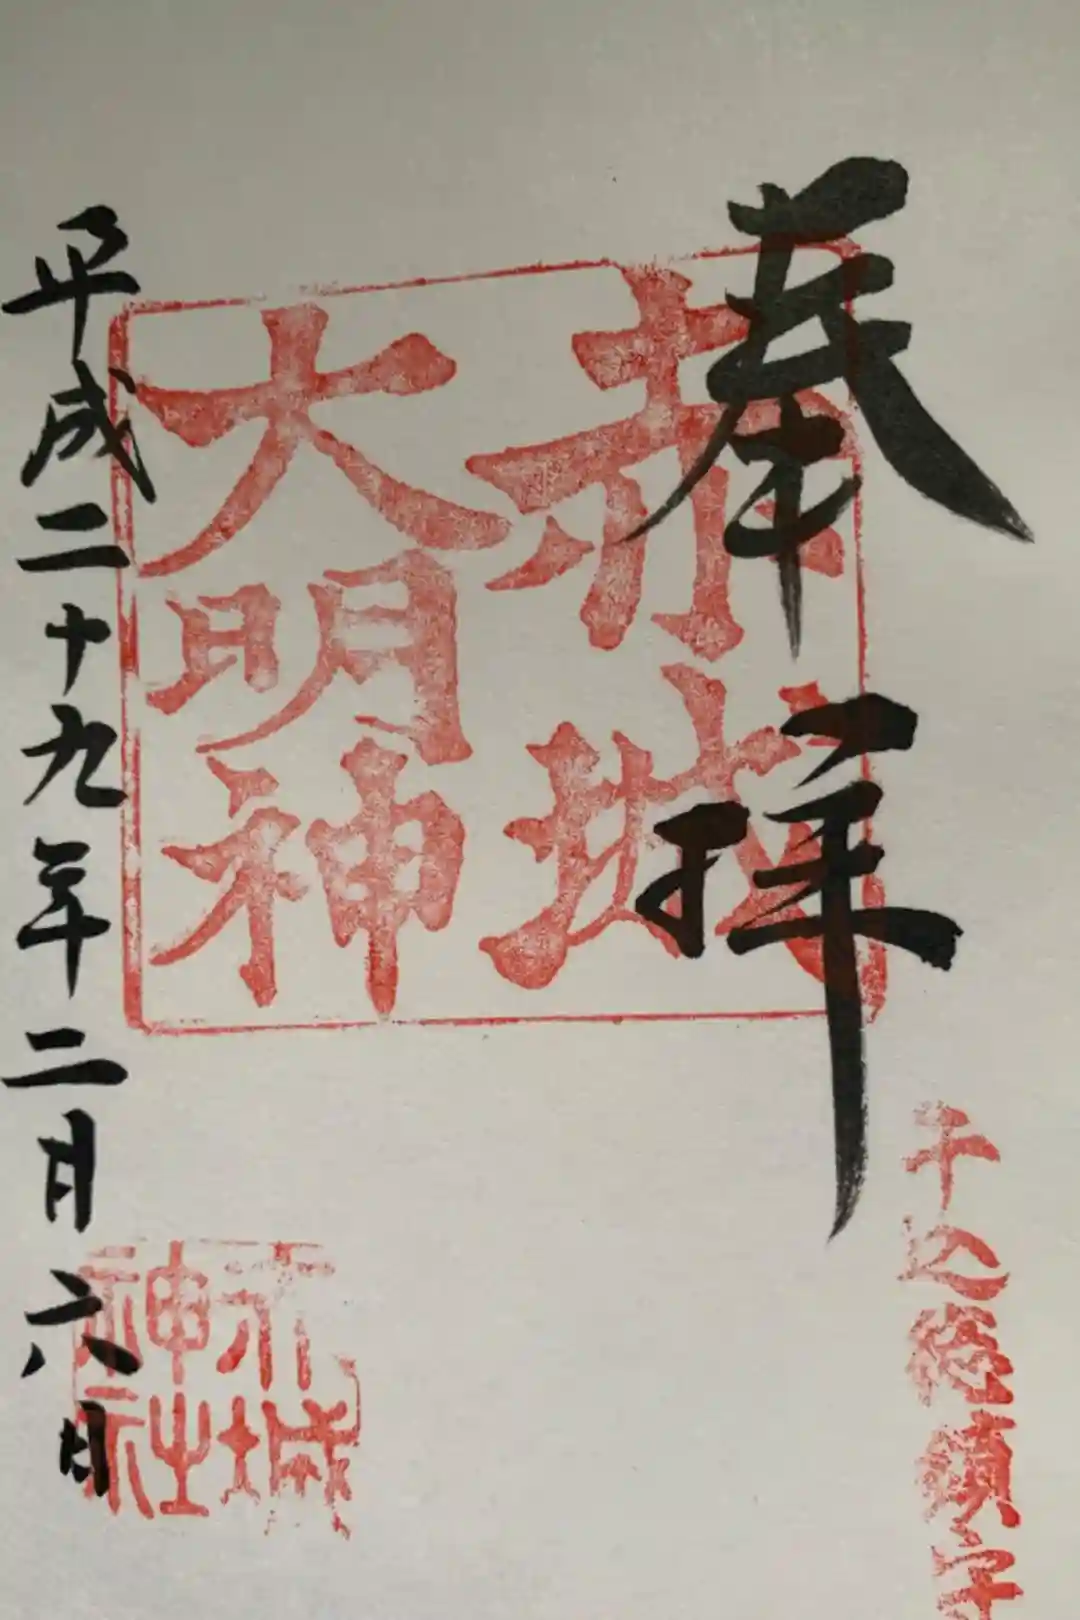 奉拝
牛込総鎮守
赤城
大明神
平成二十九年二月六日
赤城
神社